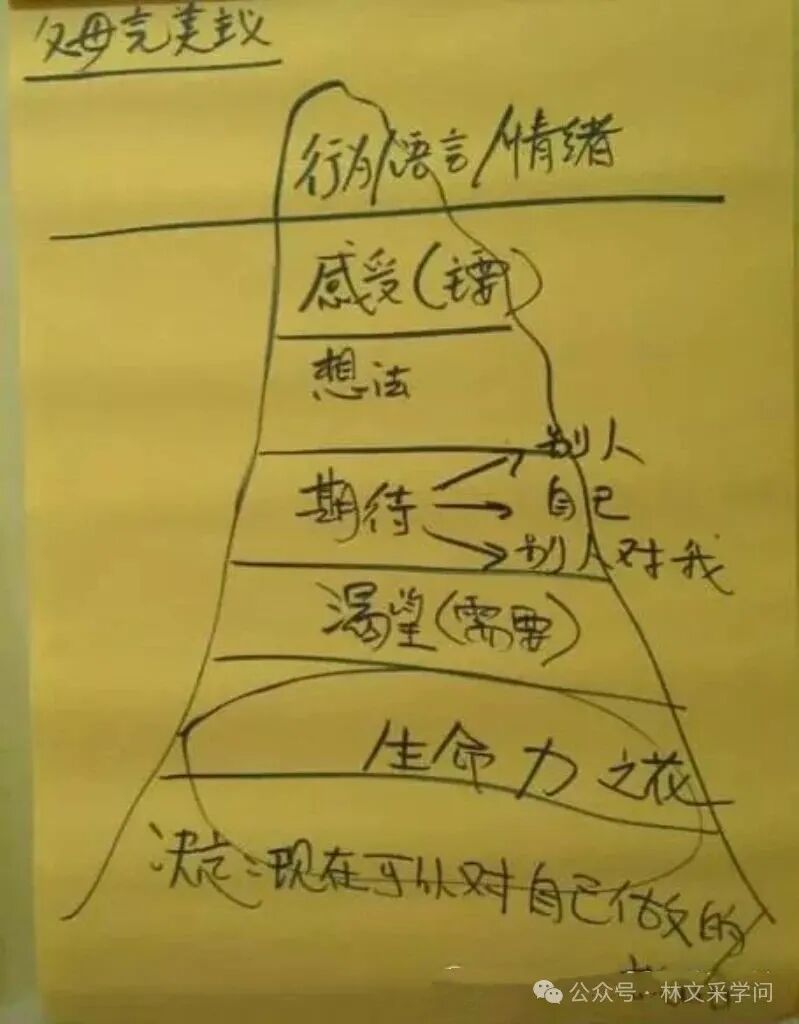 父母完美主义
行为/语言/情绪
感受(主要)
想法
期待
别人
自己
别人对我
渴望(需要)
生命力之花
决定:现在可以对自己做的
公众号·林文采学问